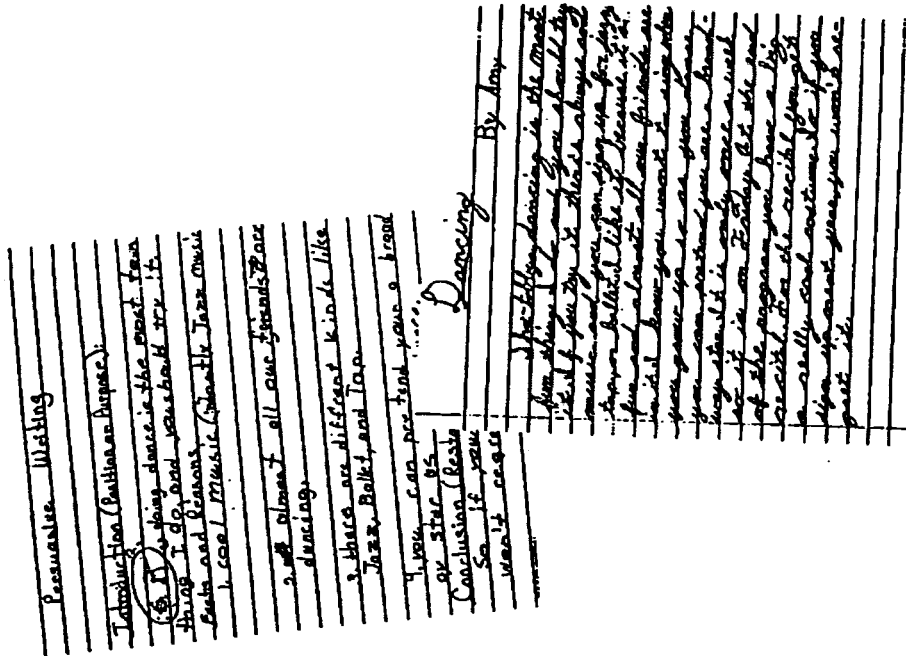 Persuasive Writing
Introduction (Position and Purpose):
doing dance is the most fun
thing I do, and you should try it.
Facts and Reasons
1. cool music (Mostly Jazz music
2. almost all our friends are
dancing.
3. there are different kinds like
Jazz, Ballet, and Tap.
4. you can pretend your a broad
way star as
Conclusion (Resta
So if you
won't regre
Dancing
By Amy
dancing is the most
fun thing I do and you should try
it. If you try it there's always cool
music and you can sign up for jazz
tap, or ballet. I like it because it's
fun and almost all our friends are
in it. I know you want to sing when
you grow up so as you dance
you can pretend you are a broad-
way star. It is only once a week
so it is on Friday. At the end
of the program you have a big
recital. For the recital you get
a really cool costume. So if you
sign up next year, you won't re-
gret it.